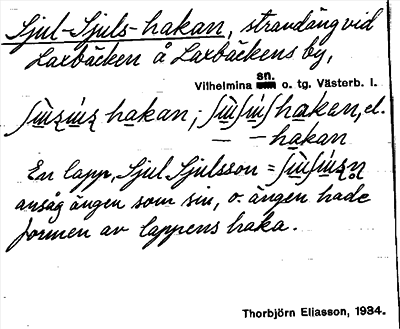 Sjul-Sjuls-hakan, strandäng vid
Laxbäcken å Laxbäckens by,
Vilhelmina sn. o. tg. Västerb. l.
hakan, hakan, el.
— — hakan
En lapp, Sjul Sjulsson =
ansåg ängen som sin, o. ängen hade
formen av lappens haka.
Thorbjörn Eliasson, 1934.